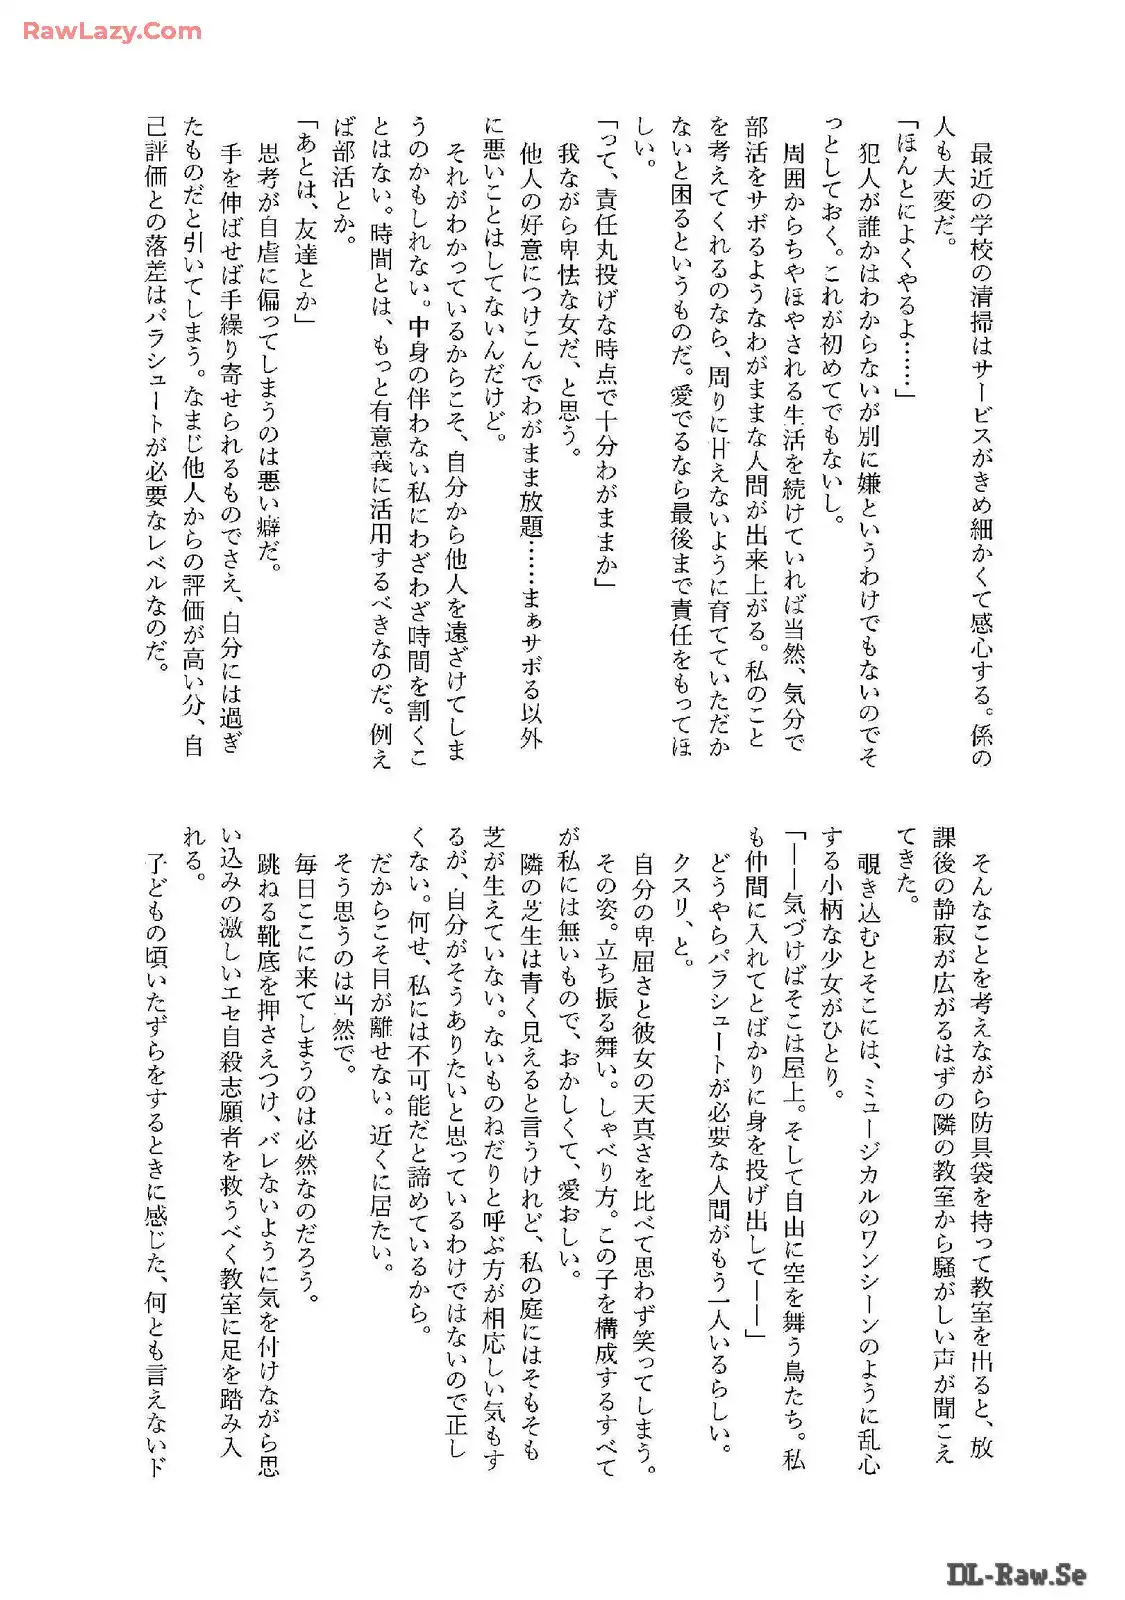 RawLazy.Com
最近の学校の清掃はサービスがきめ細かくて感心する。係の
人も大変だ。
「ほんとによくやるよ……」
犯人が誰かはわからないが別に嫌というわけでもないのでそ
っとしておく。これが初めてでもないし。
周囲からちやほやされる生活を続けていれば当然、気分で
部活をサボるようなわがままな人間が出来上がる。私のこと
を考えてくれるのなら、周りに甘えないように育てていただか
ないと困るというものだ。愛でるなら最後まで責任をもってほ
しい。
「って、責任丸投げな時点で十分わがままか」
我ながら卑怯な女だ、と思う。
他人の好意につけこんでわがまま放題……まぁサボる以外
に悪いことはしてないんだけど。
それがわかっているからこそ、自分から他人を遠ざけてしま
うのかもしれない。中身の伴わない私にわざわざ時間を割くこ
とはない。時間とは、もっと有意義に活用するべきなのだ。例え
ば部活とか。
「あとは、友達とか」
思考が自虐に偏ってしまうのは悪い癖だ。
手を伸ばせば手繰り寄せられるものでさえ、自分には過ぎ
たものだと引いてしまう。なまじ他人からの評価が高い分、自
己評価との落差はパラシュートが必要なレベルなのだ。
そんなことを考えながら防具袋を持って教室を出ると、放
課後の静寂が広がるはずの隣の教室から騒がしい声が聞こえ
てきた。
覗き込むとそこには、ミュージカルのワンシーンのように乱心
する小柄な少女がひとり。
「――気づけばそこは屋上。そして自由に空を舞う鳥たち。私
も仲間に入れてとばかりに身を投げ出して――」
どうやらパラシュートが必要な人間がもう一人いるらしい。
クスリ、と。
自分の卑屈さと彼女の天真さを比べて思わず笑ってしまう。
その姿。立ち振る舞い。しゃべり方。この子を構成するすべて
が私には無いもので、おかしくて、愛おしい。
隣の芝生は青く見えると言うけれど、私の庭にはそもそも
芝が生えていない。ないものねだりと呼ぶ方が相応しい気もす
るが、自分がそうありたいと思っているわけではないので正し
くない。何せ、私には不可能だと諦めているから。
だからこそ目が離せない。近くに居たい。
そう思うのは当然で。
毎日ここに来てしまうのは必然なのだろう。
跳ねる靴底を押さえつけ、バレないように気を付けながら思
い込みの激しいエセ自殺志願者を救うべく教室に足を踏み入
れる。
子どもの頃いたずらをするときに感じた、何とも言えないド
DL-Raw.Se